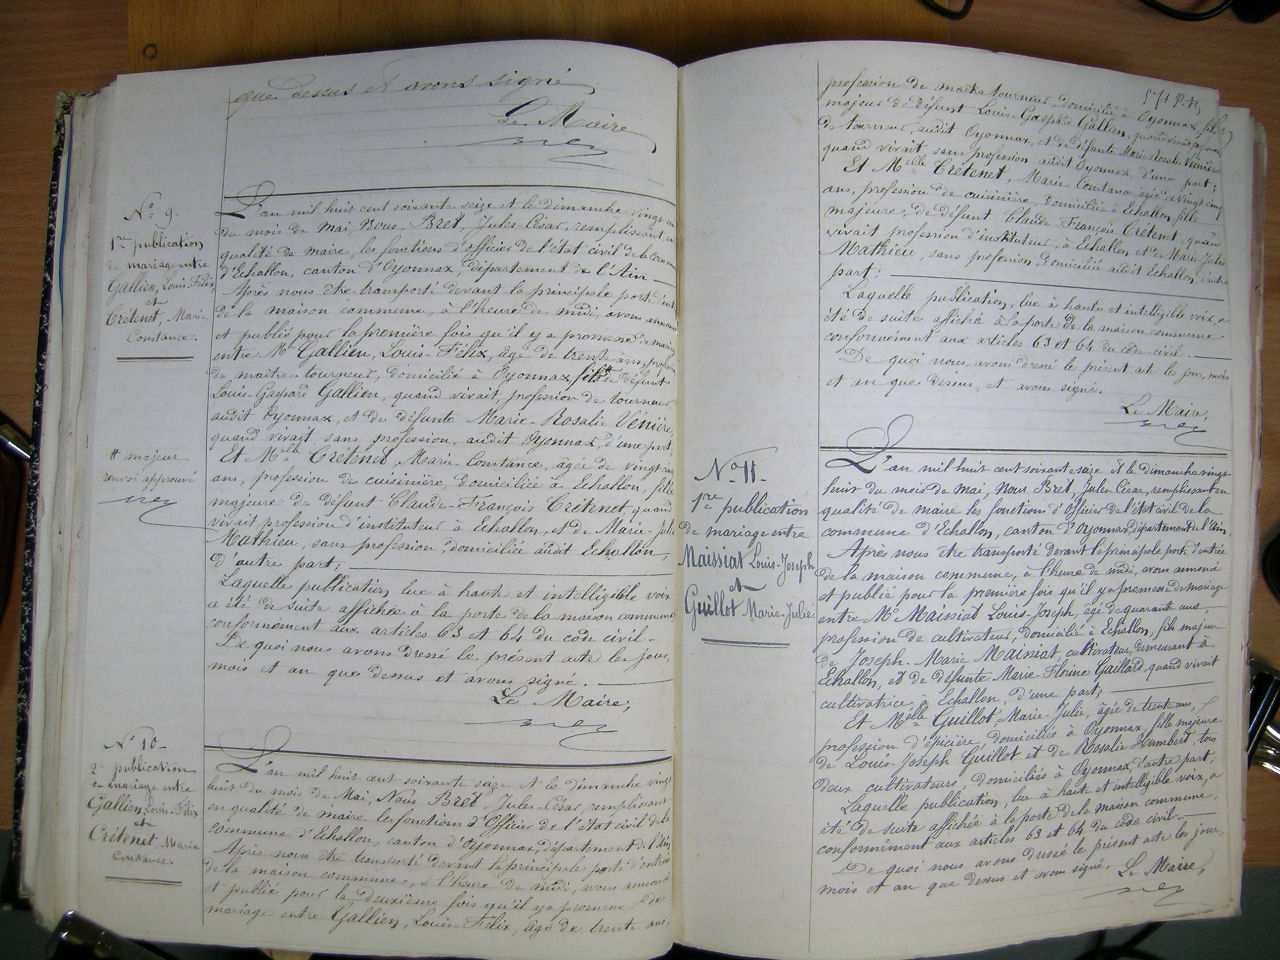 que dessus et avons signé
Le Maire
N° 9.
1re publication
de mariage entre
Gallien, Louis-Félix
et
Crétenet, Marie
Constance.
L'an mil huit cent soixante seize et le dimanche vingt-un
du mois de Mai Nous Bret, Jules-César, remplissant en
qualité de maire, les fonctions d'officier de l'état civil de la commune
d'Echallon, canton d'Oyonnax, département de l'Ain
Après nous être transporté devant la principale porte d'entrée
de la maison commune, à l'heure de midi, avons annoncé
et publié pour la première fois qu'il y a promesse de mariage
entre Mr Gallien, Louis-Félix, âgé de trente ans, profession
de maître tourneur, domicilié à Oyonnax, fils # de défunt
Louis Gaspard Gallien, quand vivait, profession de tourneur
audit Oyonnax, et de défunte Marie-Rosalie Vénière,
quand vivait, sans profession, audit Oyonnax, d'une part
Et Melle Crétenet, Marie-Constance, âgée de vingt-cinq
ans, profession de cuisinière, domiciliée à Echallon, fille
majeure de défunt Claude-François Crétenet, quand
vivait profession d'instituteur à Echallon, et de Marie-Julie
Mathieu, sans profession, domiciliée audit Echallon,
d'autre part;
Laquelle publication lue à haute et intelligible voix
a été de suite affichée à la porte de la maison commune
conformément aux articles 63 et 64 du code civil.
De quoi nous avons dressé le présent acte les jour,
mois et an que dessus et avons signé.
Le Maire,
# majeur
renvoi approuvé
N° 10
2e publication
de mariage entre
Gallien, Louis-Félix
et
Crétenet Marie
Constance.
L'an mil huit cent soixante seize et le dimanche vingt
huit du mois de Mai, Nous Bret, Jules-César, remplissant
en qualité de maire les fonctions d'Officier de l'état civil de la
commune d'Echallon, canton d'Oyonnax, département de l'Ain
Après nous être transporté devant la principale porte d'entrée
de la maison commune, à l'heure de midi, avons annoncé
et publié pour la deuxième fois qu'il y a promesse de
mariage entre Gallien, Louis-Félix, âgé de trente ans,
profession de maître tourneur, domicilié à Oyonnax, fils
majeur de défunt Louis Gaspard Gallien, quand vivait profession
de tourneur, audit Oyonnax, et de défunte Marie Rosalie Vénière
quand vivait, sans profession audit Oyonnax d'une part;
Et Melle Crétenet, Marie Constance âgée de vingt cinq
ans, profession de cuisinière, domiciliée à Echallon fille
majeure, de défunt Claude François Crétenet, quand
vivait profession d'instituteur, à Echallon et de Marie-Julie
Mathieu, sans profession, domiciliée audit Echallon, d'autre
part;
Laquelle publication, lue à haute et intelligible voix, a
été de suite affichée à la porte de la maison commune
conformément aux articles 63 et 64 du code civil.
De quoi nous avons dressé le présent acte les jour, mois
et an que dessus, et avons signé.
Le Maire,
N° 11.
1re publication
de mariage entre
Maissiat Louis-Joseph
et
Guillot Marie-Julie
L'an mil huit cent soixante seize et le dimanche vingt
huit du mois de Mai, Nous Bret, Jules César, remplissant en
qualité de maire les fonctions d'Officier de l'état civil de la
commune d'Echallon, canton d'Oyonnax, département de l'Ain.
Après nous être transporté devant la principale porte d'entrée
de la maison commune, à l'heure de midi, avons annoncé
et publié pour la première fois qu'il y a promesse de mariage
entre Mr Maissiat Louis-Joseph, âgé de quarante ans,
profession de cultivateur, domicilié à Echallon, fils majeur
de Joseph-Marie Maissiat, cultivateur, demeurant à
Echallon, et de défunte Marie Florine Gaillard, quand vivait
cultivatrice à Echallon, d'une part;
Et Melle Guillot Marie-Julie, âgée de trente ans,
profession d'épicière, domiciliée à Oyonnax, fille majeure
de Louis Joseph Guillot et de Rosalie Humbert, tous
deux cultivateurs, domiciliés à Oyonnax, d'autre part;
Laquelle publication, lue à haute et intelligible voix, a
été de suite affichée à la porte de la maison commune,
conformément aux articles 63 et 64 du code civil.
De quoi nous avons dressé le présent acte les jour,
mois et an que dessus et avons signé. Le Maire,